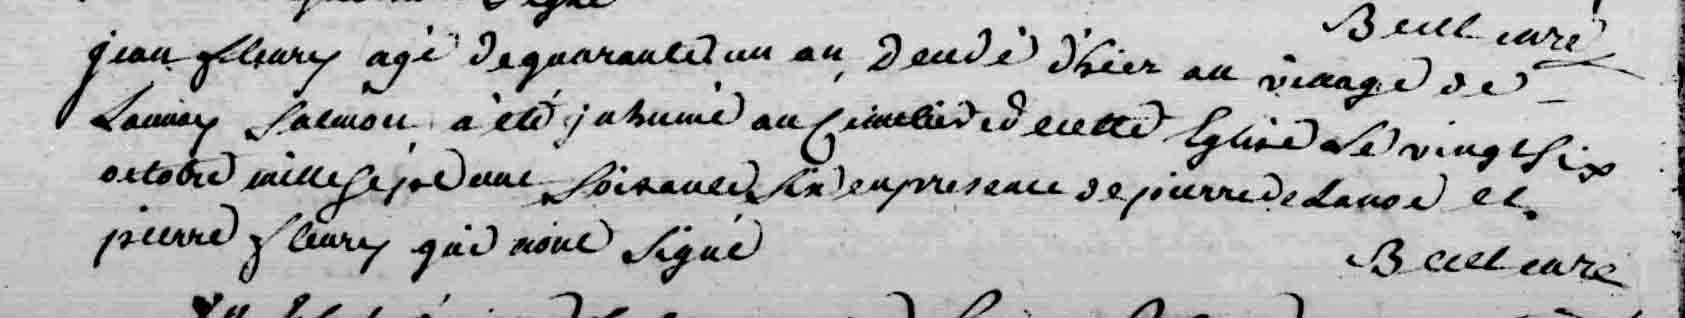 signé
curé
jean fleury agé de quarante un an, decedé d'hier au village de
Launay Salmon a été jnhumé au Cimetiere de cette Eglise le vingt six
octobre mille sept cent soixante six en presence de pierre de Lanoe et
pierre fleury qui n'ont signé
curé